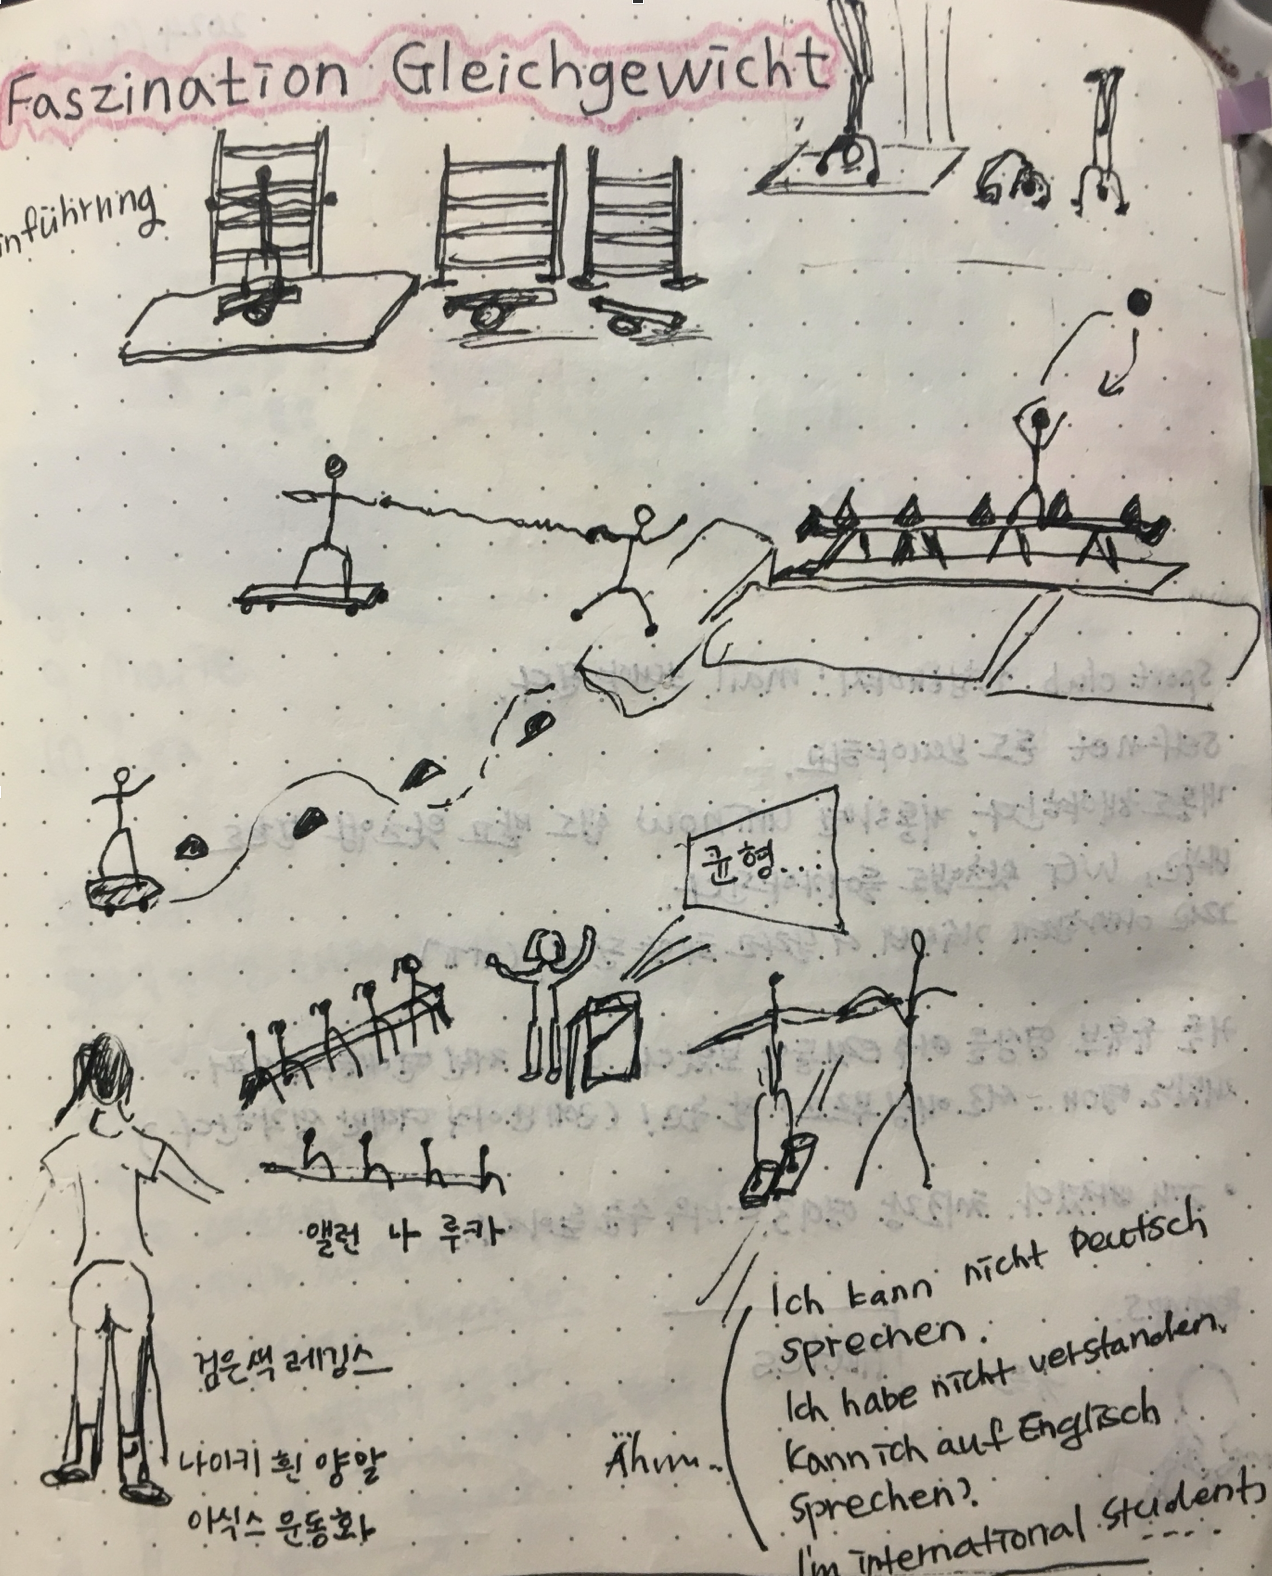 Faszination Gleichgewicht
inführung
균형...
앨런 나 루카
검은색 레깅스
나이키 흰 양말
아식스 운동화
Ähm..
Ich kann nicht Deutsch
sprechen.
Ich habe nicht verstanden.
Kann ich auf Englisch
sprechen?
I'm international students